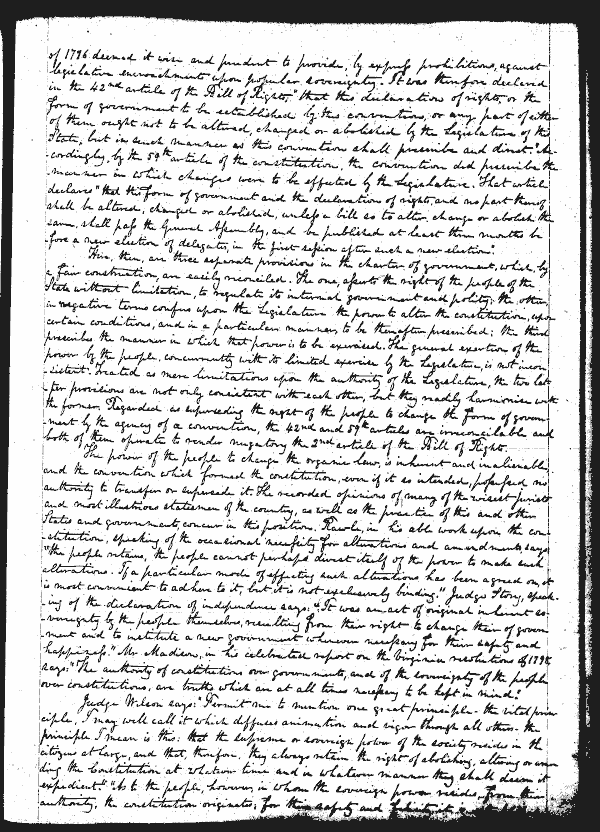 of 1776 deemed it wise and prudent to provide, by express prohibitions, against
legislative encroachment upon popular sovereignty. It was therefore declared
in the 42nd article of the Bill of Rights, "that this declaration of rights, or the
form of government to be established by this convention, or any part of either
of them ought not to be altered, changed or abolished by the Legislature of this
State, but in such manner as this convention shall prescribe and direct." Ac-
cordingly, by the 59th article of the constitution, the convention did prescribe the
manner in which changes were to be effected by the Legislature. That article
declares "that the form of government and the declaration of rights, and no part thereof
shall be altered, changed or abolished, unless a bill so to alter, change or abolish the
same, shall pass the General Assembly, and be published at least three months be
fore a new election of delegates, in the first session after such a new election."
Here, then, are three separate provisions in the charter of government, which, by
a fair construction, are easily reconciled. The one, asserts the right of the people of the
State without limitation, to regulate its internal government and polity; the other
in negative terms confers upon the Legislature the power to alter the constitution, upon
certain conditions, and in a particular manner, to be thereafter prescribed; the third
prescribes the manner in which that power is to be exercised. The general exertion of the
power by the people, concurrently with its limited exercise by the Legislature, is not incon
-sistent. Treated as mere limitations upon the authority of the Legislature, the two lat-
ter provisions are not only consistent with each other, but they readily harmonise with
the former. Regarded as superseding the right of the people to change the form of govern-
ment by the agency of a convention, the 42nd and 59th articles are irreconcilable and
both of them operate to render nugatory the 2nd article of the Bill of Rights.
The power of the people to change the organic law, is inherent and inalienable,
and the convention which formed the constitution, even if it so intended, possessed no
authority to transfer or supersede it. The recorded opinions of many of the wisest jurists
and most illustrious statesmen of the country, as well as the practice of this and other
States and governments, concur in this position. Rawle, in his able work upon the con-
stitution, speaking of the occasional necessity for alterations and amendments, says,
"the people retains, the people cannot perhaps divest itself of the power to make such
alterations. If a particular mode of effecting such alterations has been agreed on, it
is most convenient to adhere to it, but it is not exclusively binding." Judge Story, speak-
ing of the declaration of independence says: "It was an act of original inherent so-
vereignty by the people themselves, resulting from their right to change the form of govern
ment and to institute a new government whenever necessary for their safety and
happiness." Mr. Madison, in his celebrated report on the Virginia resolutions of 1798
says: "The authority of constitutions over governments, and of the sovereignty of the people
over constitutions, are truths which are at all times necessary to be kept in mind."
Judge Wilson says: "Permit me to mention one great principle - the vital prin-
ciple, I may well call it which diffuses animation and vigor through all others. the
principle I mean is this: that the supreme or sovereign power of the society resides in the
citizens at large, and that, therefore, they always retain the right of abolishing, altering or amen
ding the Constitution at whatever time and in whatever manner they shall deem it
expedient." "As to the people, however, in whom the sovereign power resides, from their
authority, the constitution originates; for their safety and felicity it is